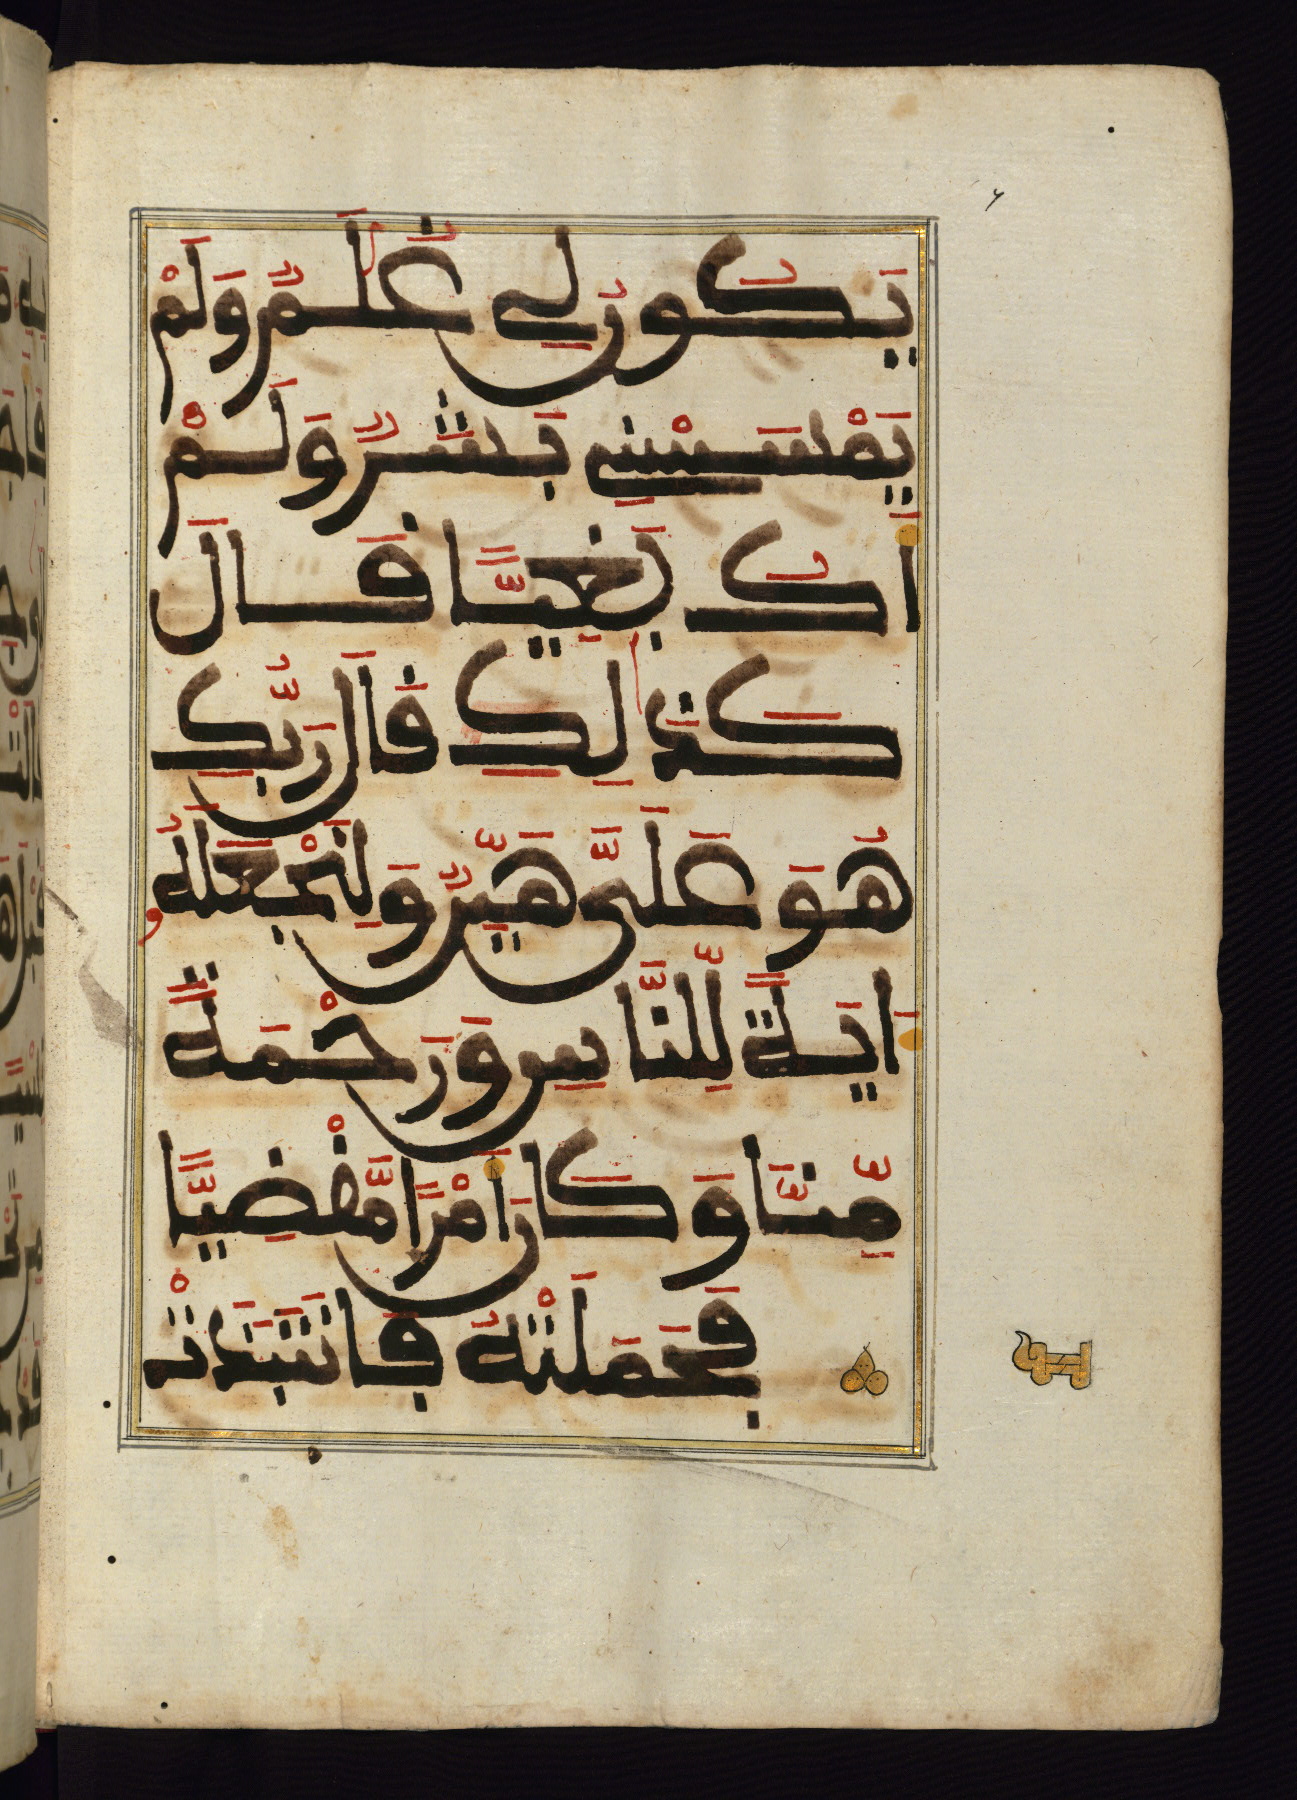 يَكُونُ لِي غُلَٰمٌ وَلَمْ
يَمْسَسْنِي بَشَرٌ وَلَمْ
أَكُ بَغِيًّا قَالَ
كَذَٰلِكِ قَالَ رَبُّكِ
هُوَ عَلَيَّ هَيِّنٌ وَلِنَجْعَلَهُۥ
ءَايَةً لِّلنَّاسِ وَرَحْمَةً
مِّنَّا وَكَانَ أَمْرًا مَّقْضِيًّا
فَحَمَلَتْهُ فَانتَبَذَتْ